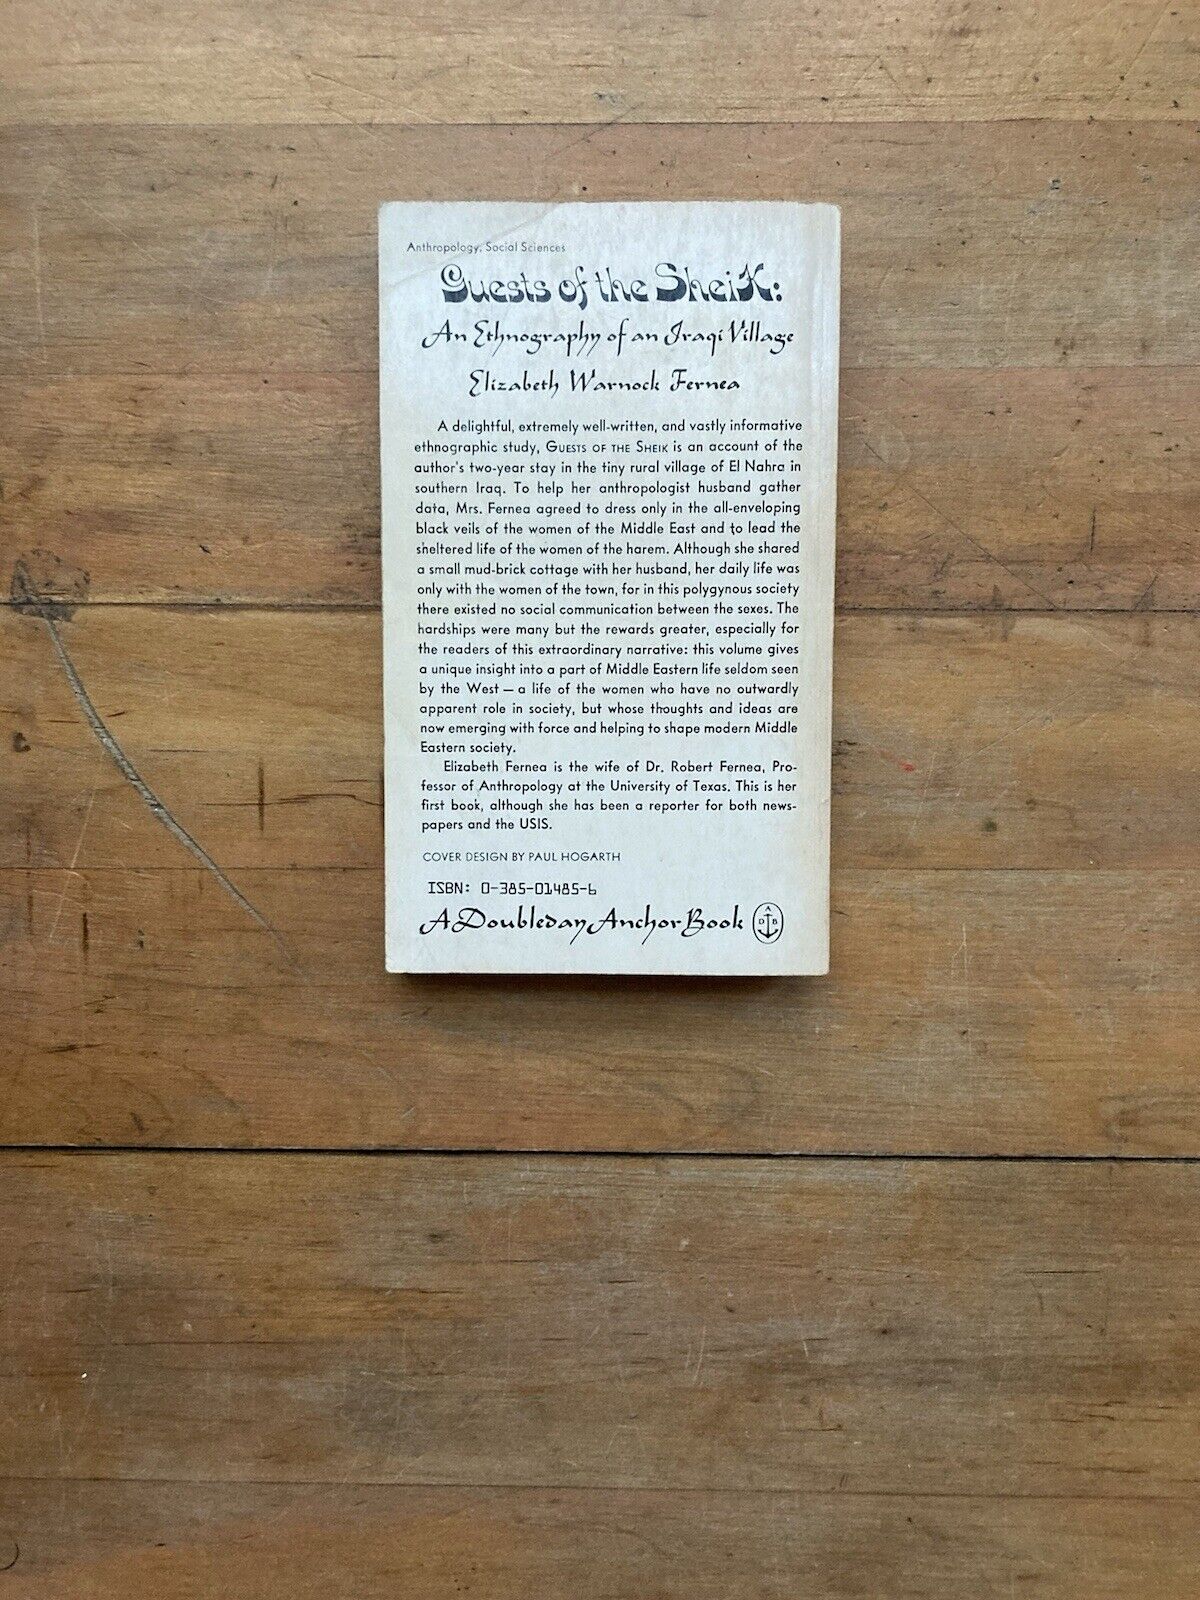 Anthropology, Social Sciences
Guests of the Sheik:
An Ethnography of an Iraqi Village
Elizabeth Warnock Fernea
A delightful, extremely well-written, and vastly informative
ethnographic study, GUESTS OF THE SHEIK is an account of the
author's two-year stay in the tiny rural village of El Nahra in
southern Iraq. To help her anthropologist husband gather
data, Mrs. Fernea agreed to dress only in the all-enveloping
black veils of the women of the Middle East and to lead the
sheltered life of the women of the harem. Although she shared
a small mud-brick cottage with her husband, her daily life was
only with the women of the town, for in this polygynous society
there existed no social communication between the sexes. The
hardships were many but the rewards greater, especially for
the readers of this extraordinary narrative: this volume gives
a unique insight into a part of Middle Eastern life seldom seen
by the West — a life of the women who have no outwardly
apparent role in society, but whose thoughts and ideas are
now emerging with force and helping to shape modern Middle
Eastern society.
Elizabeth Fernea is the wife of Dr. Robert Fernea, Pro-
fessor of Anthropology at the University of Texas. This is her
first book, although she has been a reporter for both news-
papers and the USIS.
COVER DESIGN BY PAUL HOGARTH
ISBN: 0-385-01485-6
A Doubleday Anchor Book
A
D B